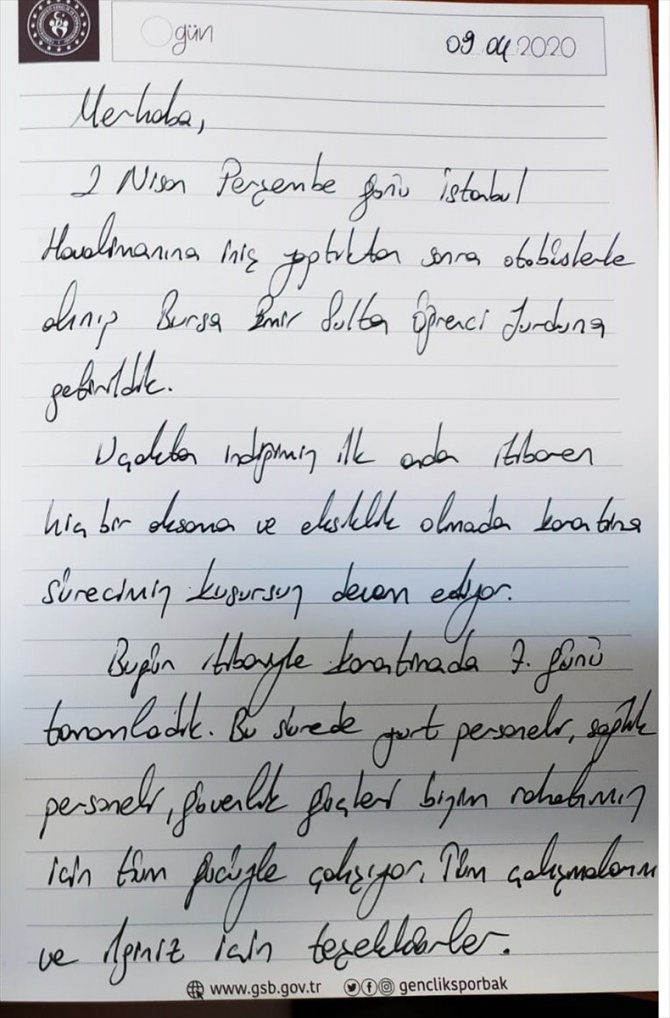 Ogün
09 04 2020
Merhaba,
2 Nisan Perşembe günü İstanbul
Havalimanına iniş yaptıktan sonra otobüslerle
alınıp Bursa Emir Sultan Öğrenci Yurduna
getirildik.
Uçaktan indiğimiz ilk andan itibaren
hiç bir aksama ve eksiklik olmadan karantina
sürecimiz kusursuz devam ediyor.
Bugün itibariyle karantinada 7. günü
tamamladık. Bu sürede yurt personeli, sağlık
personeli, güvenlik güçleri bizim rahatımız
için tüm gücüyle çalışıyor. Tüm çalışmalarınız
ve ilginiz için teşekkürler.
www.gsb.gov.tr gencliksporbak